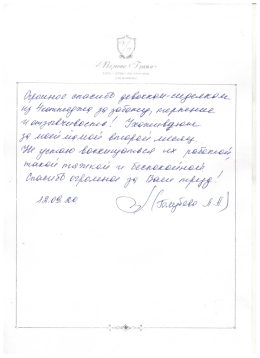 Огромное спасибо девочкам-сиделкам
из Коттеджа за заботу, терпение
и отзывчивость! Ухаживают
за моей мамой второй месяц.
Не устаю восхищаться их работой,
такой тяжкой и беспокойной
Спасибо огромное за Ваш труд!
12.09.20 (Голубева Л.Л)